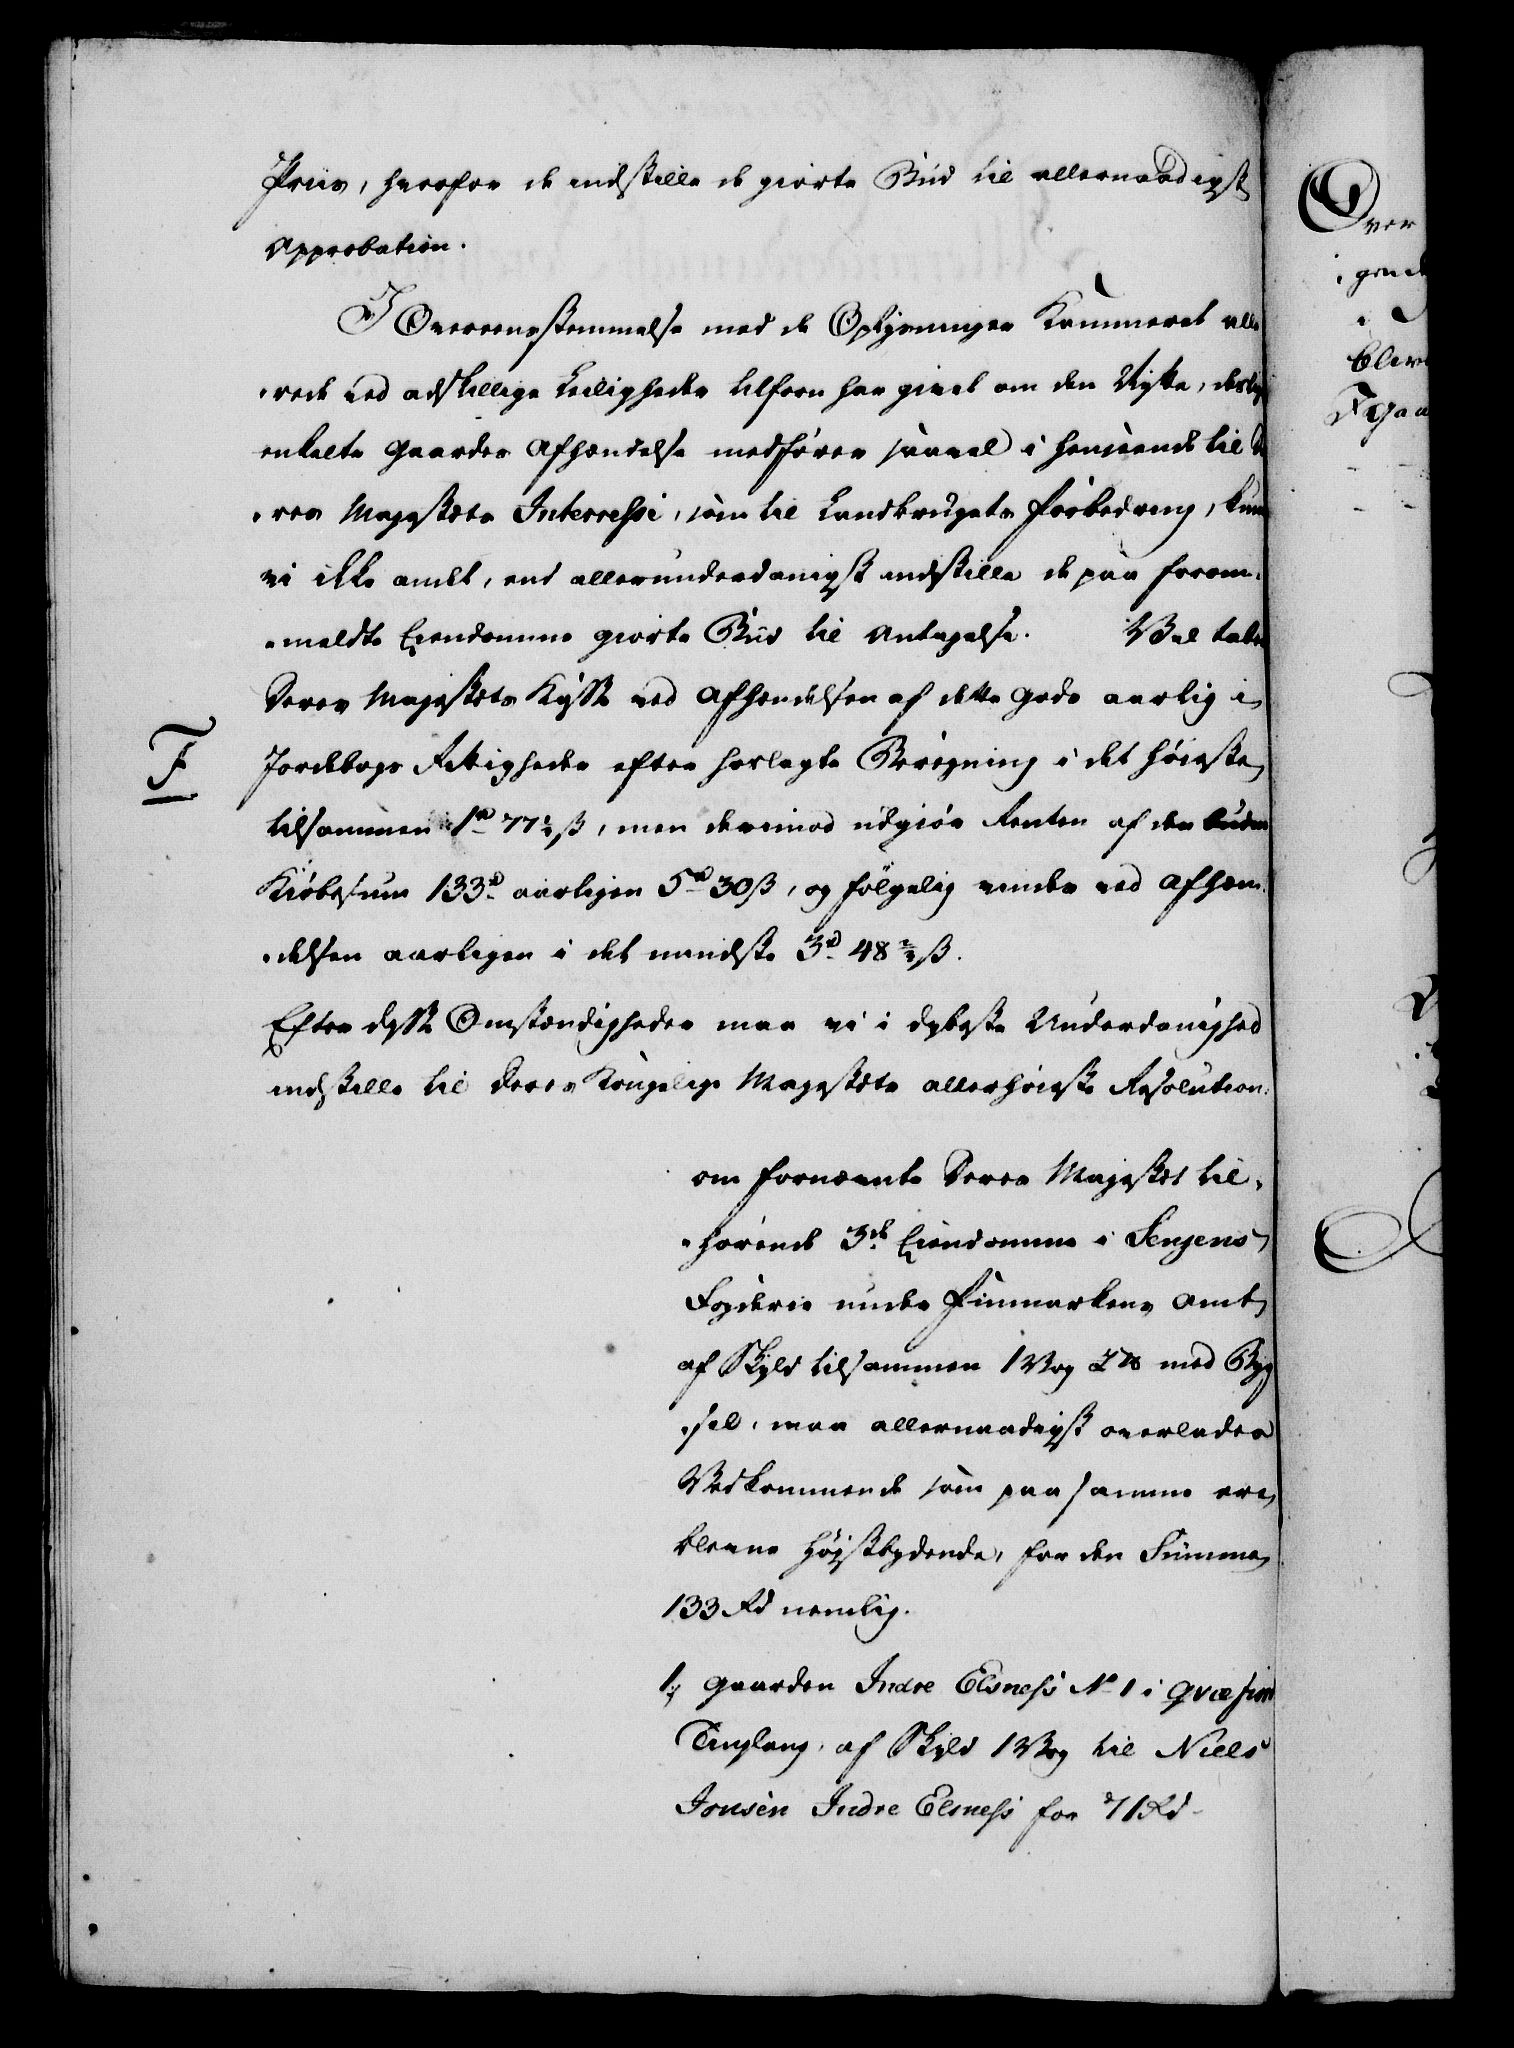 Priis, hvorfor de indstille de giorte Bud til allernaadigst
Approbation.
I Overeensstemmelse med de Oplysninger Kammeret alle-
rede ved adskillige Leiligheder tilforn har givet om den Nytte, deslige
enkelte Gaarders Afhændelse medfører saavel i Henseende til De-
res Majestæts Interresse, som til Landbrugets Forbedring, kunne
vi ikke andet, end allerunderdanigst indstille de paa foran-
meldte Eiendomme giorte Bud til Antagelse. Vel taber
Deres Majestets Kasse ved Afhændelsen af dette Gods aarlig i
F
Jordebogs Rettigheder efter hoslagte Beregning i det høieste
tilsammen 1rd 77½ ß, men derimod udgiør Renten af den budne
Kiøbesum 133rd aarligen 5rd 30ß, og følgelig vindes ved Afhæn-
delsen aarligen i det mindste 3rd 48½ ß.
Efter disse Omstændigheder maa vi i dybeste Underdanighed
indstille til Deres Kongelige Majestæts allerhøieste Resolution:
om fornævnte Deres Majestet til-
hørende 3de Eiendomme i Senjens
Fogderie under Finmarkens Amt
af Skyld tilsammen 1 Vog med Byg-
sel, maa allernaadigst overlades
Vedkommende som paa samme ere
blevne Højstbydende, for den Summa
133 Rd nemlig.
1) Gaarden Indre Elsness No 1 i Qvæfiord
Tinglaug, af Skyld 1 Vog til Niels
Jonsen Indre Elsness for 71 Rd
Over